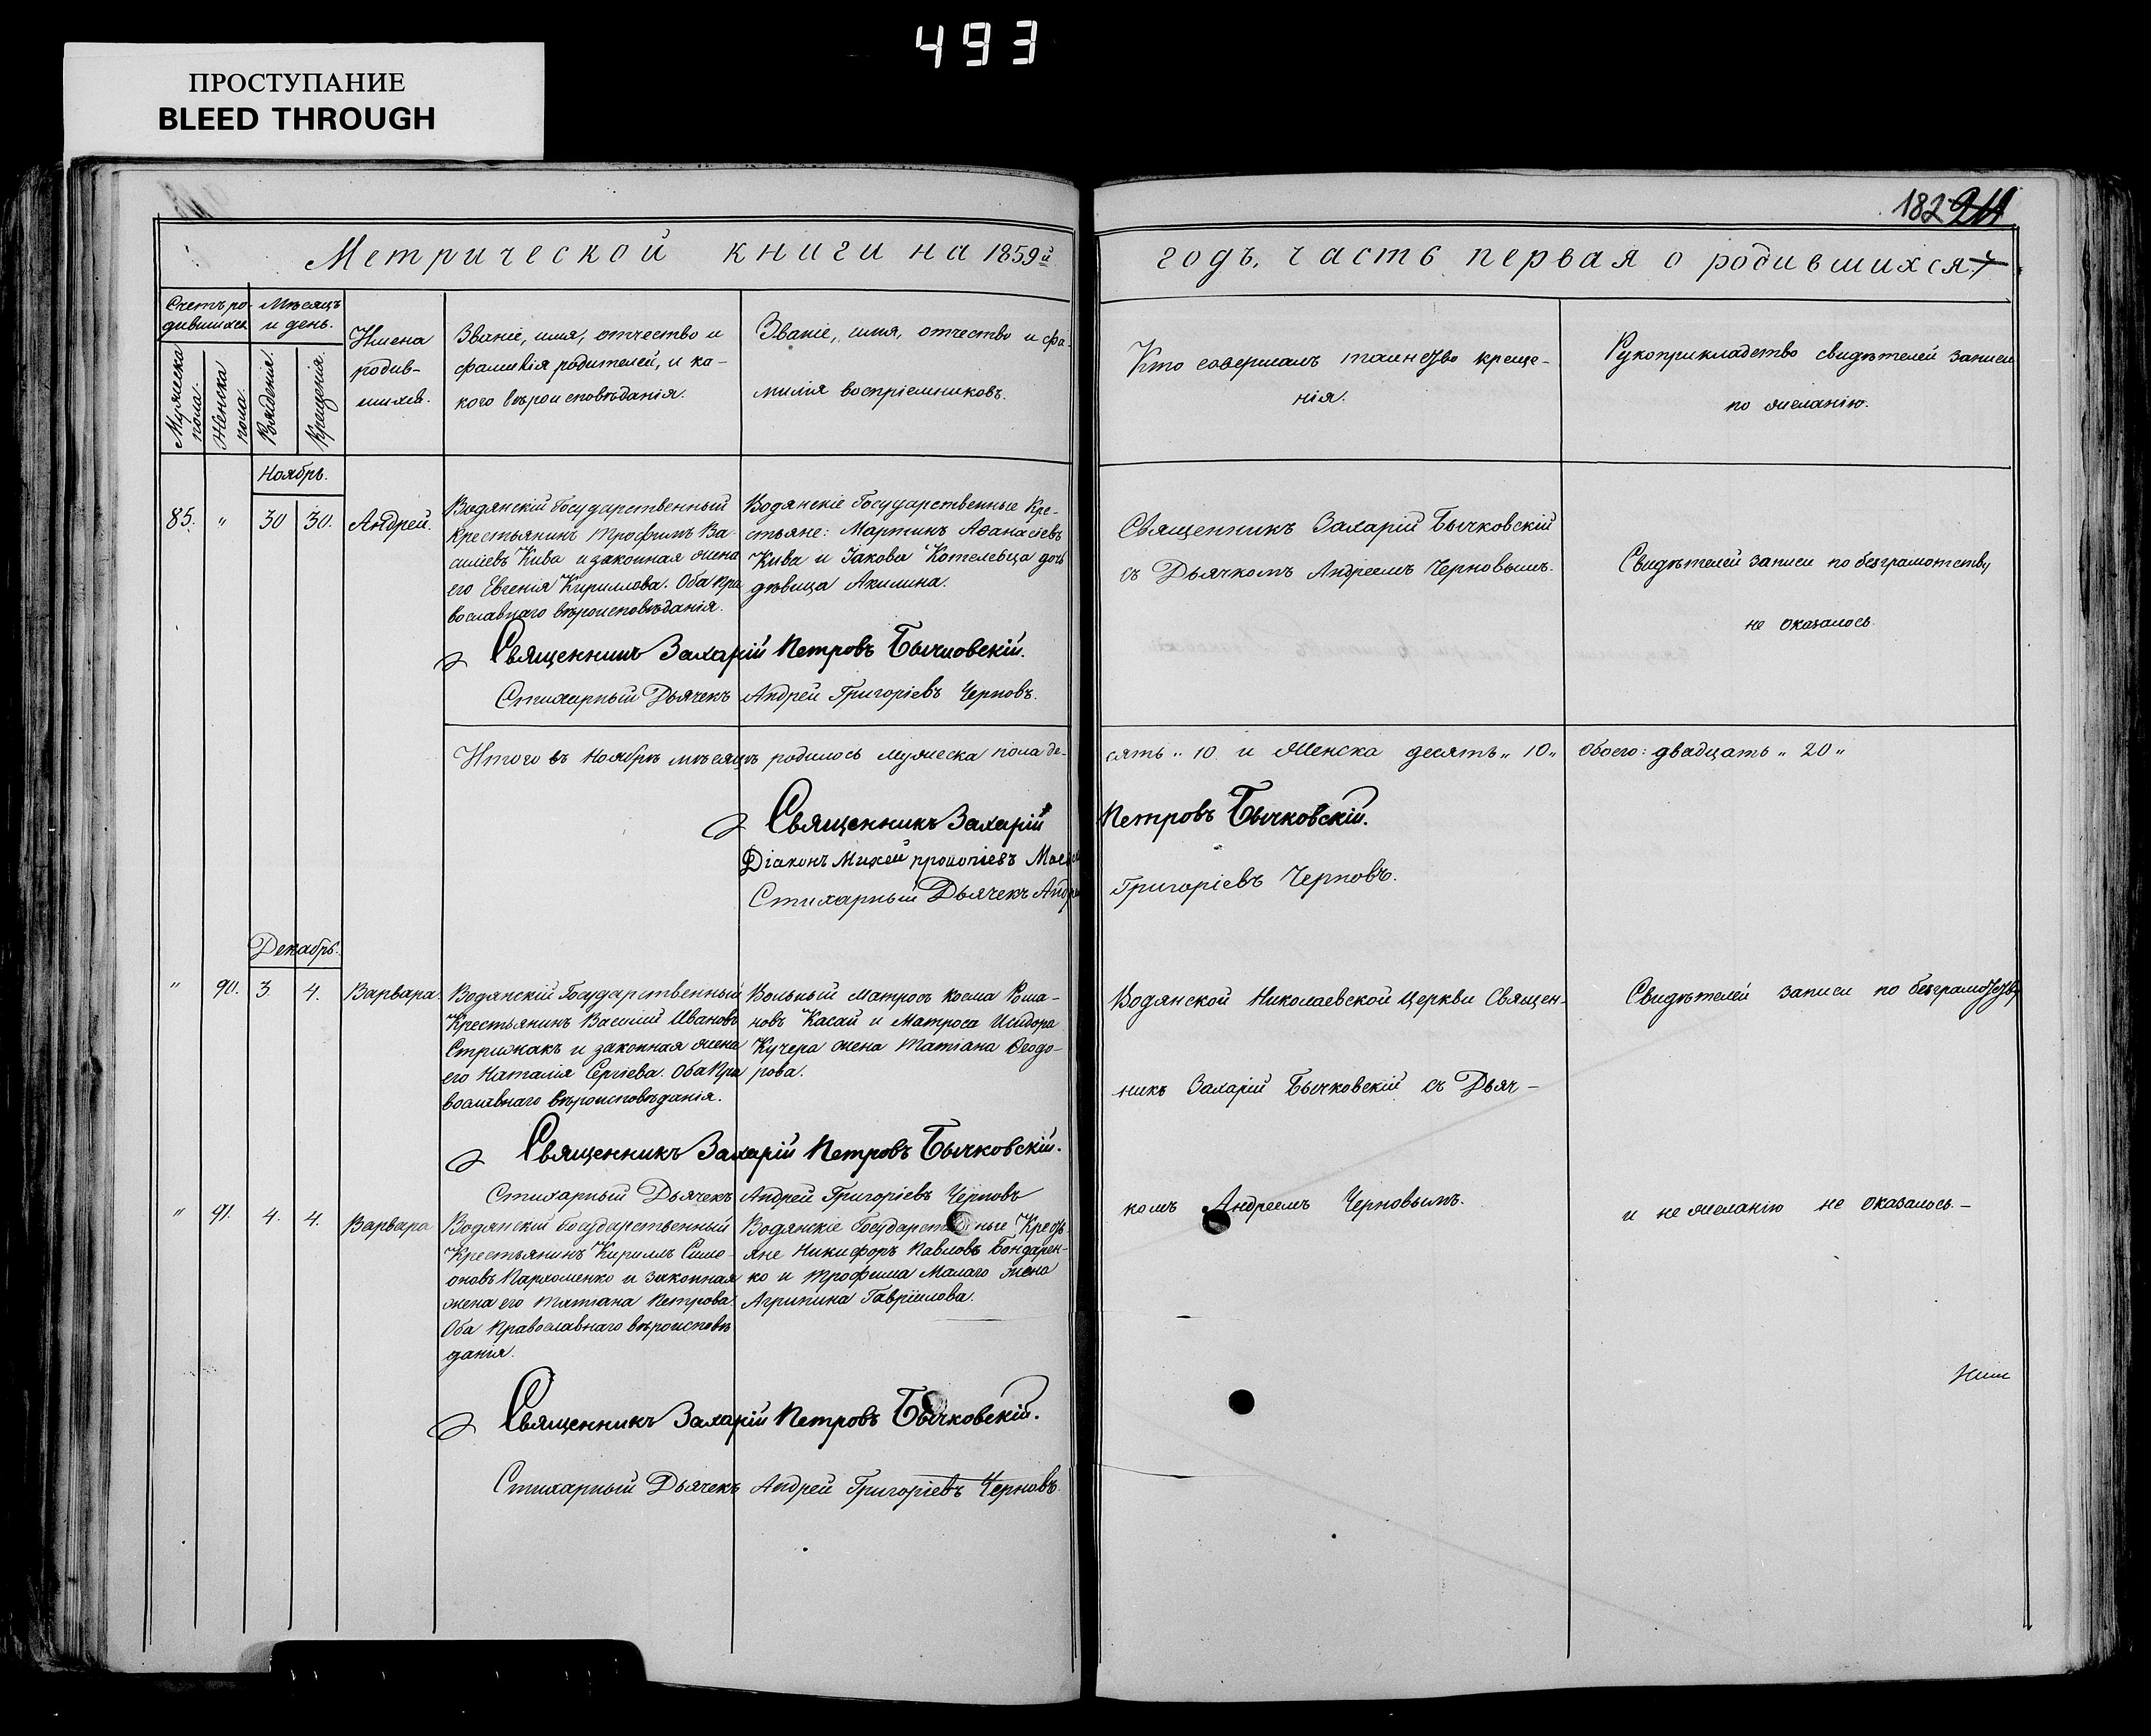 493
ПРОСТУПАНИЕ
BLEED THROUGH
182
Метрической книги на 1859й годъ, часть первая о родившихся.
Счетъ родившихся.
Мѣсяцъ и день.
Мужеска пола.
Женска пола.
Рожденія.
Крещенія.
Имена
родив-
шихся.
Званіе, имя, отчество и
фамилія родителей, и ка-
кого вѣроисповѣданія.
Званіе, имя, отчество и фа-
милія воспріемниковъ.
Кто совершалъ таинство креще-
нія.
Рукоприкладство свидѣтелей записи
по желанію.
Ноябрь.
85. " 30 30. Андрей.
Водянскій Государственный
Крестьянинъ Трофимъ Ва-
силіевъ Кива и законная жена
его Евгенія Кириллова. Оба Пра
вославнаго вѣроисповѣданія.
Водянскіе Государственные Кре-
стьяне: Мартинъ Аѳанасіевъ
Кива и Іакова Котелевца дочь
дѣвица Акилина.
Священникъ Захарій Бычковскій
съ Дьячкомъ Андреемъ Черновымъ.
Свидѣтелей записи по безграмотству
не оказалось.
Священникъ Захарій Петровъ Бычковскій.
Стихарный Дьячекъ Андрей Григоріевъ Черновъ.
Итого въ Ноябрѣ мѣсяцѣ родилось мужеска пола де-
сять „ 10 и Женска десять „ 10 „ Обоего: двадцать „ 20 „
Священникъ Захарій Петровъ Бычковскій.
Діаконъ Михей Прокопіевъ
Стихарный Дьячекъ Андрей Григоріевъ Черновъ.
Декабрь.
" 90. 3. 4. Варвара.
Водянскій Государственный
Крестьянинъ Василій Ивановъ
Стрижакъ и законная жена
его Наталія Сергіева. Оба Пра
вославнаго вѣроисповѣданія.
Вольный Матросъ Косма Рома-
новъ Касай и Матроса Исидора
Кучера жена Татіана Ѳеодо-
рова.
Водянской Николаевской Церкви Священ-
никъ Захарій Бычковскій съ Дьяч-
комъ Андреемъ Черновымъ.
Свидѣтелей записи по безграмотству
и не желанію не оказалось.-
Священникъ Захарій Петровъ Бычковскій.
Стихарный Дьячекъ Андрей Григоріевъ Черновъ
" 91. 4. 4. Варвара
Водянскій Государственный
Крестьянинъ Кириллъ Симе-
оновъ Пархоменко и законная
жена его Татіана Петрова.
Оба Православнаго вѣроисповѣ
данія.
Водянскіе Государственные Кресть-
яне Никифоръ Павловъ Бондарен-
ко и Трофима Малаго жена
Агрипина Гавріилова.
Священникъ Захарій Петровъ Бычковскій.
Стихарный Дьячекъ Андрей Григоріевъ Черновъ.